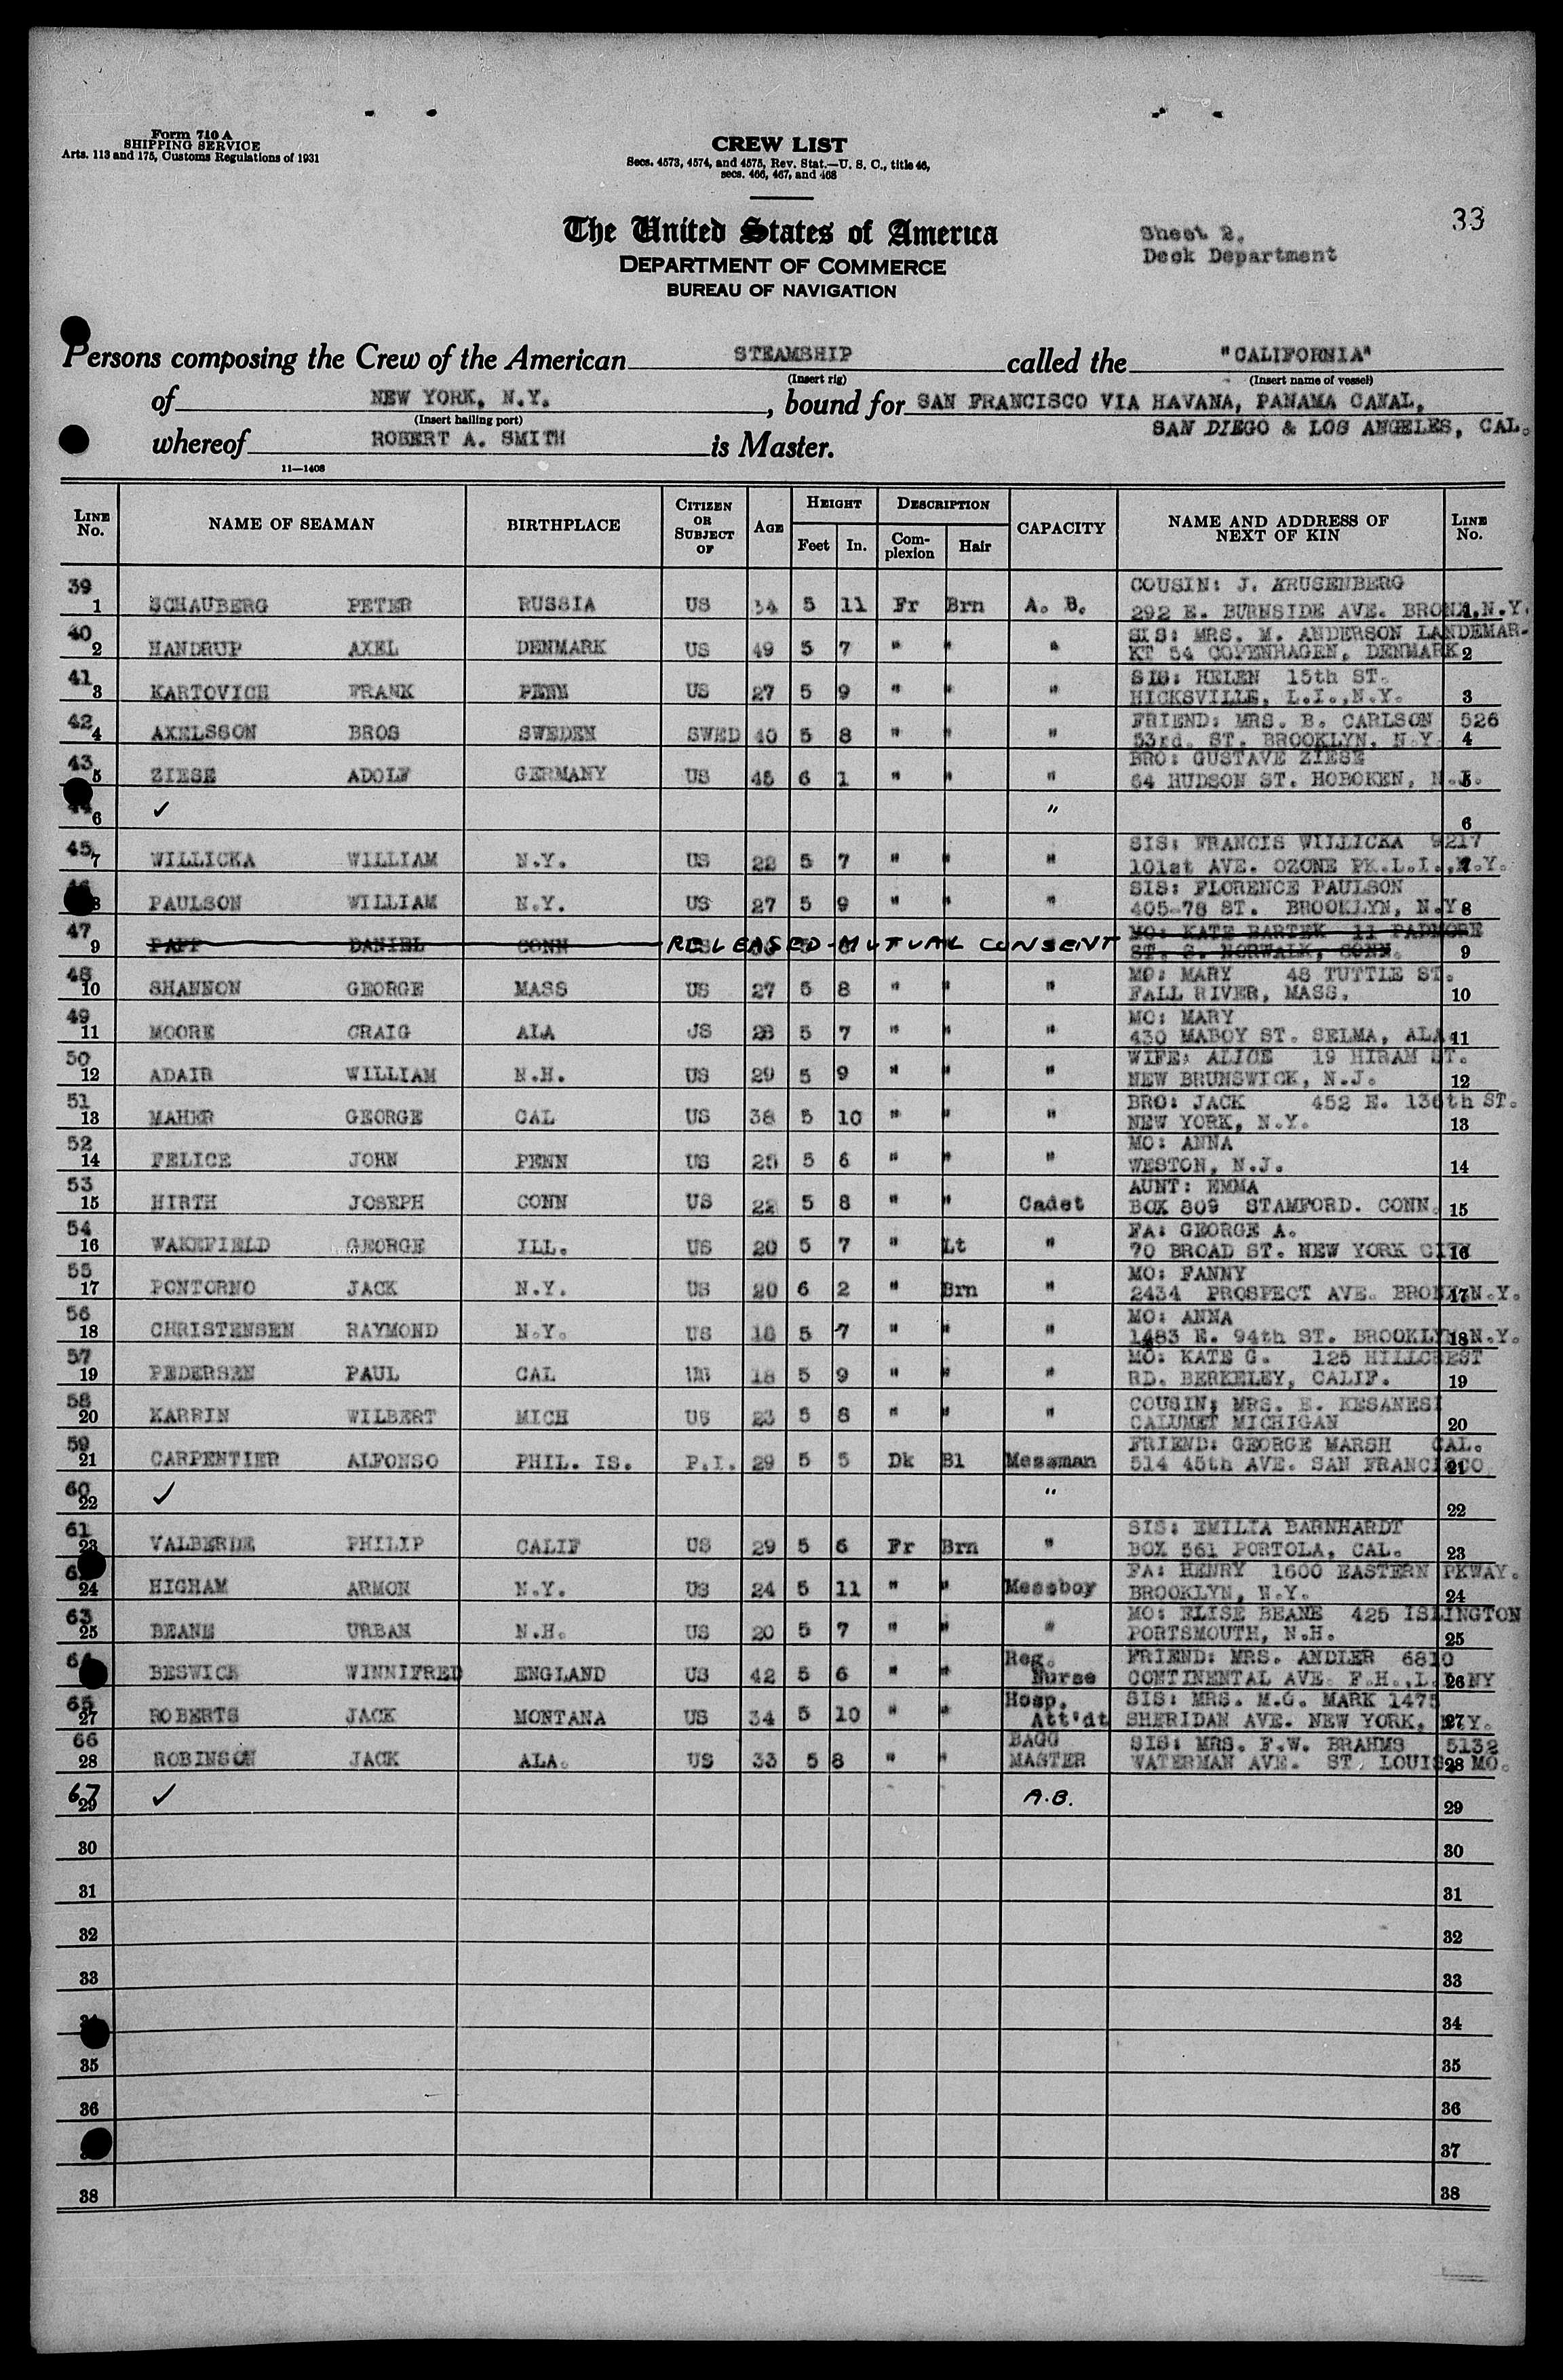 Form 710 A
SHIPPING SERVICE
Arts. 113 and 175, Customs Regulations of 1931
CREW LIST
Secs. 4573, 4574, and 4575, Rev. Stat.—U. S. C., title 46,
secs. 466, 467, and 468
33
The United States of America
DEPARTMENT OF COMMERCE
BUREAU OF NAVIGATION
Sheet 2.
Deck Department
Persons composing the Crew of the American STEAMSHIP called the "CALIFORNIA"
(Insert rig) (Insert name of vessel)
of NEW YORK, N.Y. , bound for SAN FRANCISCO VIA HAVANA, PANAMA CANAL,
(Insert hailing port) SAN DIEGO & LOS ANGELES, CAL.
whereof ROBERT A. SMITH is Master.
11—1408
LINE No. NAME OF SEAMAN BIRTHPLACE CITIZEN OR SUBJECT OF AGE HEIGHT Feet In. DESCRIPTION Complexion Hair CAPACITY NAME AND ADDRESS OF NEXT OF KIN LINE No.
39 COUSIN: J. KRUSENBERG
1 SCHAUBERG PETER RUSSIA US 34 5 11 Fr Brn A. B. 292 E. BURNSIDE AVE. BRONX,N.Y. 1
40 SIS: MRS. M. ANDERSON LANDEMAR-
2 HANDRUP AXEL DENMARK US 49 5 7 " " " KT 54 COPENHAGEN, DENMARK 2
41 SIS: HELEN 15th ST.
3 KARTOVICH FRANK PENN US 27 5 9 " " " HICKSVILLE, L.I.,N.Y. 3
42 FRIEND: MRS. B. CARLSON 526
4 AXELSSON BROS SWEDEN SWED 40 5 8 " " " 53rd. ST. BROOKLYN, N.Y. 4
43 BRO: GUSTAVE ZIESE
5 ZIESE ADOLF GERMANY US 45 6 1 " " " 64 HUDSON ST. HOBOKEN, N.J. 5
44
6 ✓ " 6
45 SIS: FRANCIS WILLICKA 9217
7 WILLICKA WILLIAM N.Y. US 22 5 7 " " " 101st AVE. OZONE PK.L.I.,N.Y. 7
46 SIS: FLORENCE PAULSON
8 PAULSON WILLIAM N.Y. US 27 5 9 " " " 405-78 ST. BROOKLYN, N.Y 8
47 MO: KATE BARTEK 11 PADMORE
9 PAPP DANIEL CONN RELEASED-MUTUAL CONSENT ST. S. NORWALK, CONN. 9
48 MO: MARY 48 TUTTLE ST.
10 SHANNON GEORGE MASS US 27 5 8 " " " FALL RIVER, MASS. 10
49 MO: MARY
11 MOORE CRAIG ALA US 28 5 7 " " " 430 MABOY ST. SELMA, ALA 11
50 WIFE: ALICE 19 HIRAM ST.
12 ADAIR WILLIAM N.H. US 29 5 9 " " " NEW BRUNSWICK, N.J. 12
51 BRO: JACK 452 E. 136th ST.
13 MAHER GEORGE CAL US 38 5 10 " " " NEW YORK, N.Y. 13
52 MO: ANNA
14 FELICE JOHN PENN US 25 5 6 " " " WESTON, N.J. 14
53 AUNT: EMMA
15 HIRTH JOSEPH CONN US 22 5 8 " " Cadet BOX 809 STAMFORD. CONN. 15
54 FA: GEORGE A.
16 WAKEFIELD GEORGE ILL. US 20 5 7 " Lt " 70 BROAD ST. NEW YORK CITY 16
55 MO: FANNY
17 PONTORNO JACK N.Y. US 20 6 2 " Brn " 2434 PROSPECT AVE. BRONX N.Y. 17
56 MO: ANNA
18 CHRISTENSEN RAYMOND N.Y. US 18 5 7 " " " 1483 E. 94th ST. BROOKLYN N.Y. 18
57 MO: KATE G. 125 HILLCREST
19 PEDERSEN PAUL CAL US 18 5 9 " " " RD. BERKELEY, CALIF. 19
58 COUSIN: MRS. E. KESANESI
20 KARRIN WILBERT MICH US 23 5 8 " " " CALUMET MICHIGAN 20
59 FRIEND: GEORGE MARSH CAL.
21 CARPENTIER ALFONSO PHIL. IS. P.I. 29 5 5 Dk Bl Messman 514 45th AVE. SAN FRANCISCO 21
60
22 ✓ " 22
61 SIS: EMILIA BARNHARDT
23 VALBERDE PHILIP CALIF US 29 5 6 Fr Brn " BOX 561 PORTOLA, CAL. 23
62 FA: HENRY 1600 EASTERN PKWAY.
24 HIGHAM ARMON N.Y. US 24 5 11 " " Messboy BROOKLYN, N.Y. 24
63 MO: ELISE BEANE 425 ISLINGTON
25 BEANE URBAN N.H. US 20 5 7 " " " PORTSMOUTH, N.H. 25
64 Reg. FRIEND: MRS. ANDLER 6810
BESWICK WINNIFRED ENGLAND US 42 5 6 " " Nurse CONTINENTAL AVE. F.H.,L.I. NY 26
65 Hosp. SIS: MRS. M.G. MARK 1475
27 ROBERTS JACK MONTANA US 34 5 10 " " Att'dt SHERIDAN AVE. NEW YORK, N.Y. 27
66 BAGG SIS: MRS. F.W. BRAHMS 5132
28 ROBINSON JACK ALA. US 33 5 8 " " MASTER WATERMAN AVE. ST. LOUIS, MO. 28
67
29 ✓ A.B. 29
30 30
31 31
32 32
33 33
34 34
35 35
36 36
37
38 38